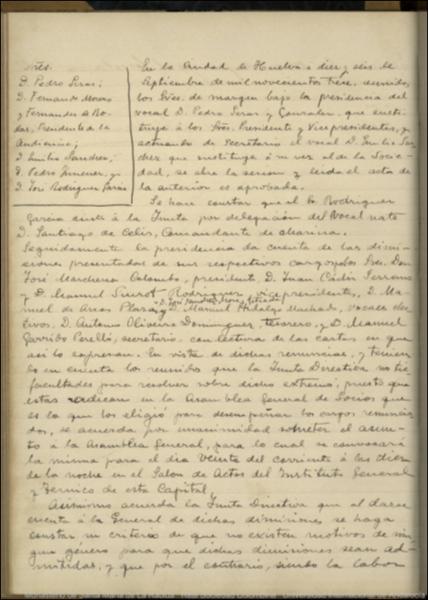 Sres.
D. Pedro Seras;
D. Fernando Moreno
y Fernandez de Ro-
das, Presidente de la
Audiencia;
D. Emilio Sanchez;
D. Pedro Jimenez, y
D. José Rodriguez García
En la ciudad de Huelva a diez y seis de
Septiembre de mil novecientos trece, reunidos
los Sres. de margen bajo la presidencia del
vocal D. Pedro Seras y Gonzalez, que susti-
tuye á los Sres. Presidente y Vicepresidentes, y
actuando de Secretario el vocal D. Emilio San-
chez que sustituye á su vez al de la Socie-
dad, se abre la sesion y leida el acta de
la anterior es aprobada.
Se hace constar que el Sr. Rodriguez
García asiste á la Junta por delegación del Vocal nato
D. Santiago de Celis, Comandante de Marina.
Seguidamente la presidencia da cuenta de las dimi-
siones presentadas de sus respectivos cargos por los Sres. Don
José Marchena Colombo, presidente, D. Juan Cádiz Serrano
y D. Manuel Siurot Rodriguez, vicepresidentes, D. Ma-
nuel de Arcos y D. Manuel Hidalgo Machado, vocales elec-
tivos, D. Antonio Oliveira Dominguez, tesorero, y D. Manuel
Garrido Perelló, secretario, con lectura de las cartas en que
asi lo expresan. En vista de dichas renuncias, y tenien-
do en cuenta los reunidos que la Junta Directiva no tie
facultades para resolver sobre dicho extremo, puesto que
estas radican en la Asamblea General de Socios que
es la que los eligió para desempeñar los cargos renuncia-
dos, se acuerda por unanimidad someter el asun-
to á la Asamblea General, para lo cual se convocará
la misma para el dia veinte del corriente á las diez
de la noche en el Salon de Actos del Instituto General
y Tecnico de esta Capital.
Asimismo acuerda la Junta Directiva que al darse
cuenta á la General de dichas dimisiones se haga
constar su criterio de que no existen motivos de nin-
gun género para que dichas dimisiones sean ad-
mitidas, y que por el contrario, siendo la labor